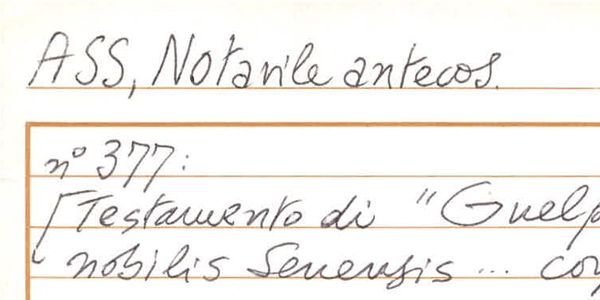 ASS, Notarile antecos.
n° 377:
[Testamento di "Guelf
nobilis Senensis ... con